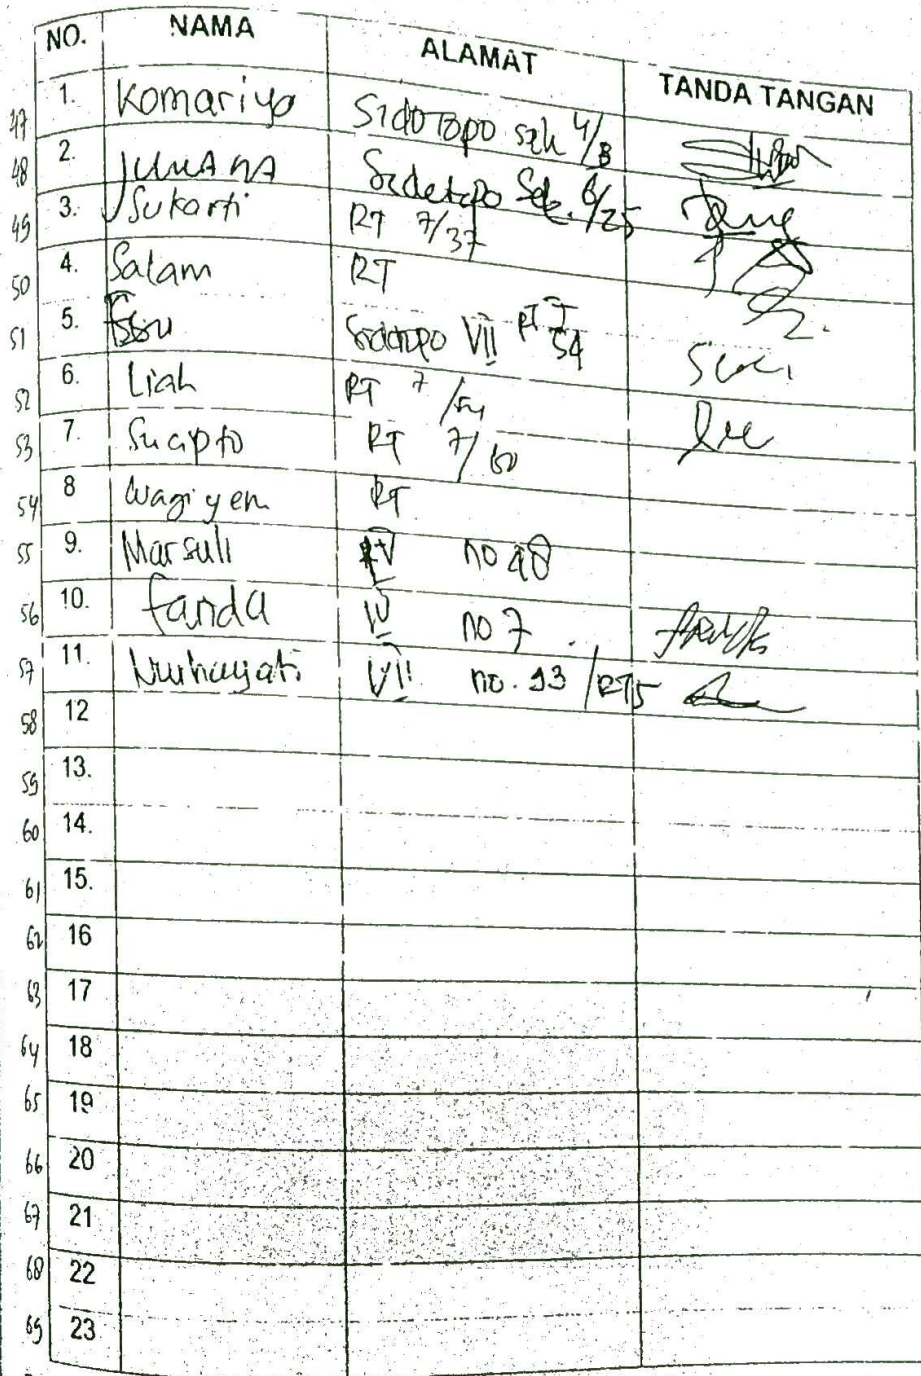 NO. NAMA ALAMAT TANDA TANGAN
47 1. Komariya Sidotopo sek 4/B
48 2. JUMANA Sidotopo Sek. 6/25
49 3. Sukarti RT 7/37
50 4. Salam RT
51 5. Sidotopo VII RT 7 54
52 6. Liah RT 7/54
53 7. Sucipto RT 7/60
54 8 wagiyem RT
55 9. Marsuli IV no 48
56 10. farida IV no 7
57 11. Nurhayati VII no. 93 / RT5
58 12
59 13.
60 14.
61 15.
62 16
63 17
64 18
65 19
66 20
67 21
68 22
69 23